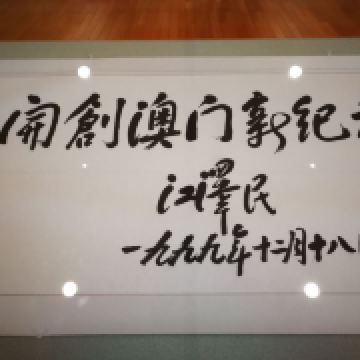 開創澳门新纪
江泽民
一九九九年十二月十八